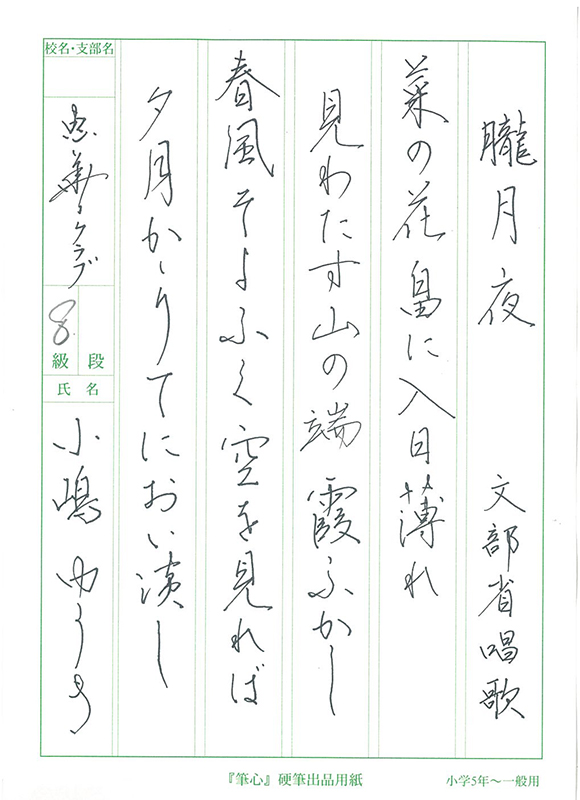 朧月夜　文部省唱歌
菜の花畠に入日薄れ
見わたす山の端霞ふかし
春風そよふく空を見れば
夕月かゝりてにおい淡し
校名・支部名
クラブ
段
8級
氏名
小嶋
『筆心』硬筆出品用紙
小学5年～一般用